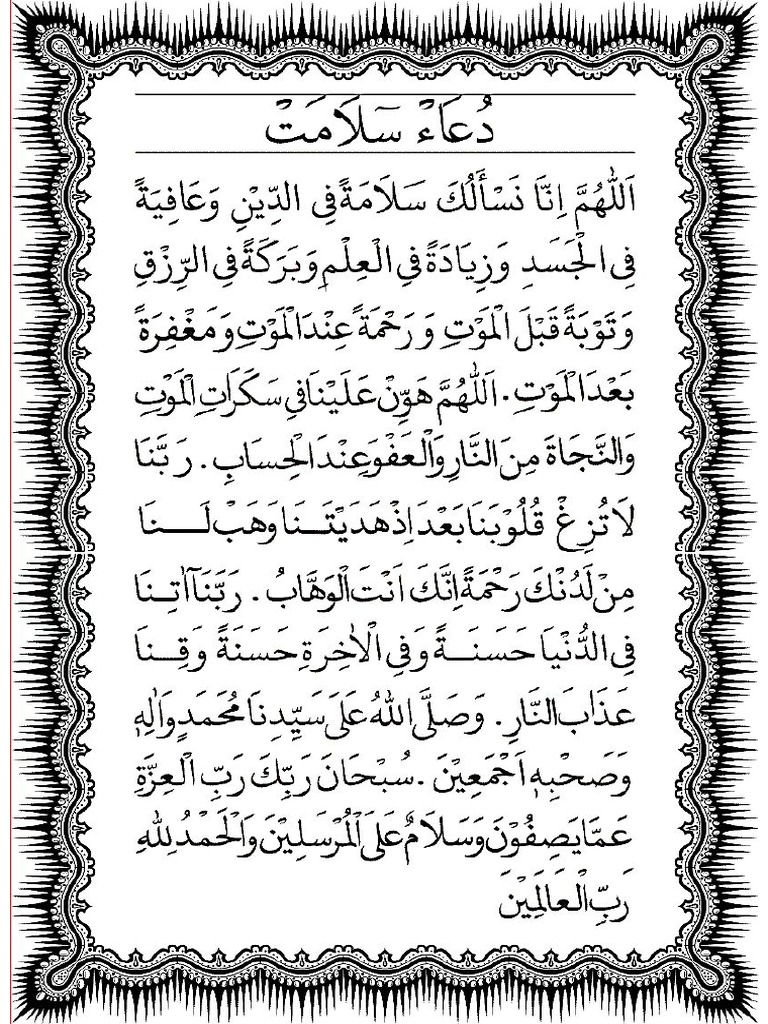 دُعَاءْ سَلَامَتْ
اَللّٰهُمَّ اِنَّا نَسْأَلُكَ سَلَامَةً فِى الدِّيْنِ وَعَافِيَةً
فِى الْجَسَدِ وَزِيَادَةً فِى الْعِلْمِ وَبَرَكَةً فِى الرِّزْقِ
وَتَوْبَةً قَبْلَ الْمَوْتِ وَرَحْمَةً عِنْدَ الْمَوْتِ وَمَغْفِرَةً
بَعْدَ الْمَوْتِ. اَللّٰهُمَّ هَوِّنْ عَلَيْنَا فِى سَكَرَاتِ الْمَوْتِ
وَالنَّجَاةَ مِنَ النَّارِ وَالْعَفْوَ عِنْدَ الْحِسَابِ. رَبَّنَا
لَا تُزِغْ قُلُوْبَنَا بَعْدَ اِذْ هَدَيْتَــنَا وَهَبْ لَــــنَا
مِنْ لَدُنْكَ رَحْمَةً اِنَّكَ اَنْتَ الْوَهَّابُ. رَبَّنَآ اٰتِــنَا
فِى الدُّنْيَا حَسَنَــةً وَفِى الْاٰخِرَةِ حَسَنَةً وَقِــنَا
عَذَابَ النَّارِ. وَصَلَّى اللّٰهُ عَلَى سَيِّدِنَا مُحَمَدٍ وَاٰلِهٖ
وَصَحْبِهٖ اَجْمَعِيْنَ. سُبْحَانَ رَبِّكَ رَبِّ الْعِزَّةِ
عَمَّا يَصِفُوْنَ وَسَلَامٌ عَلَى الْمُرْسَلِيْنَ وَالْحَمْدُ لِلّٰهِ
رَبِّ الْعَالَمِيْنَ